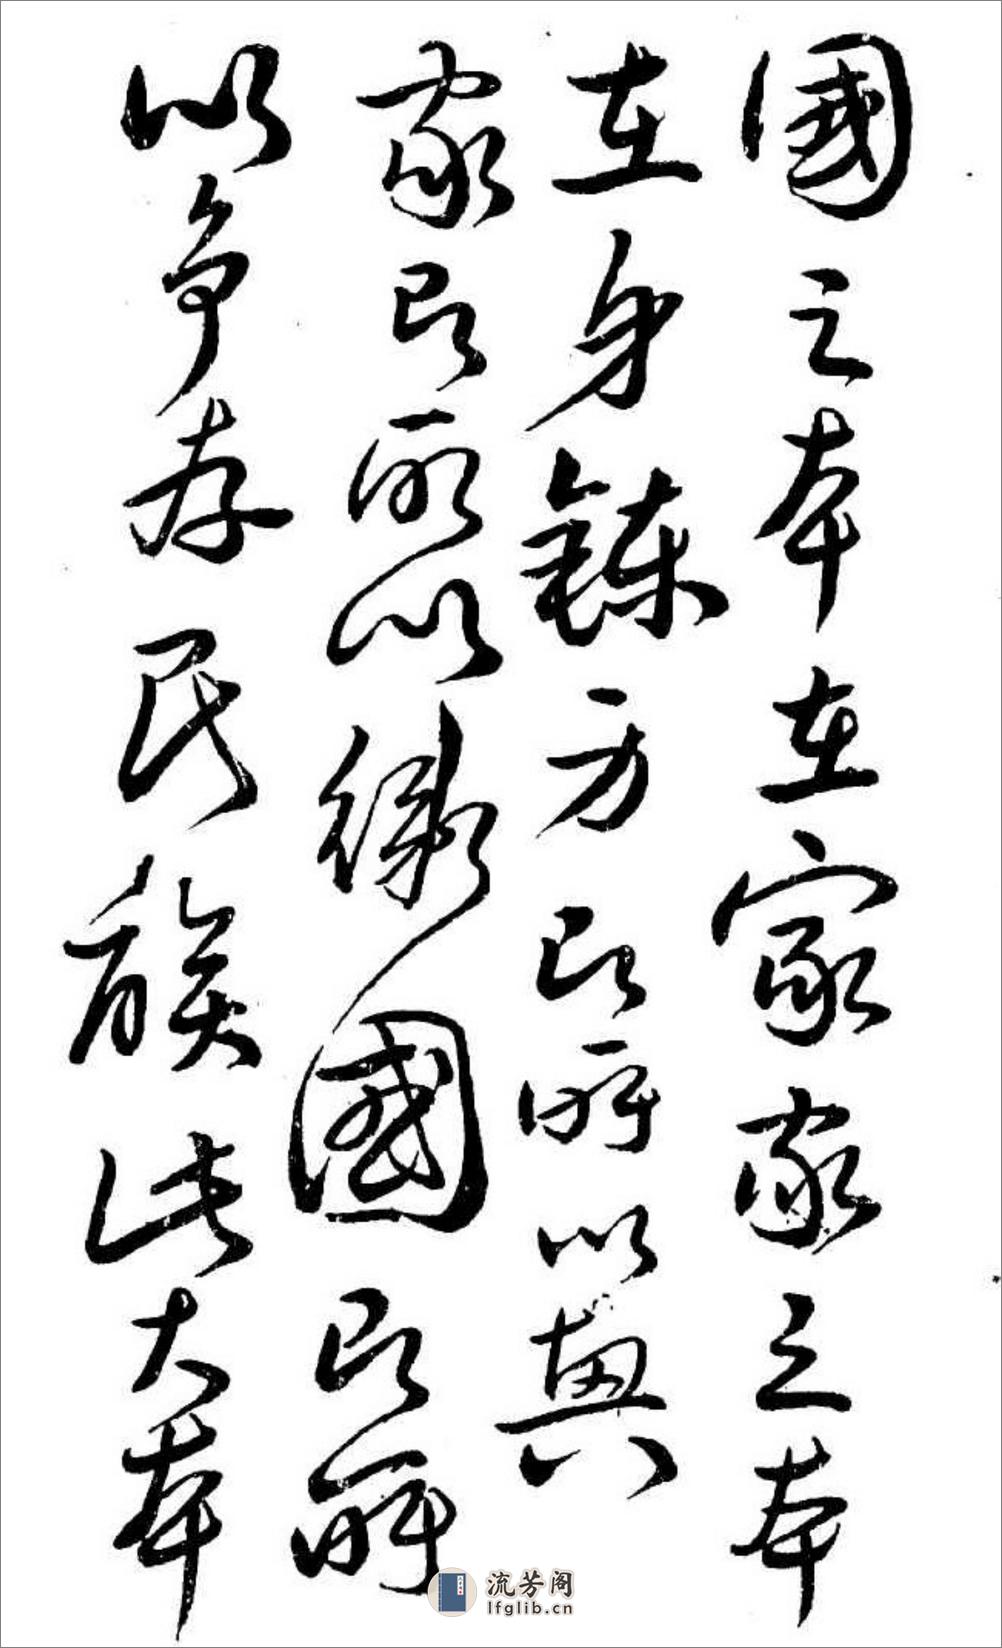 國之本在家家之本
在身鍊方即所以興
家即所以衛國即所
以爭存民族此大本
流芳阁
lfglib.cn